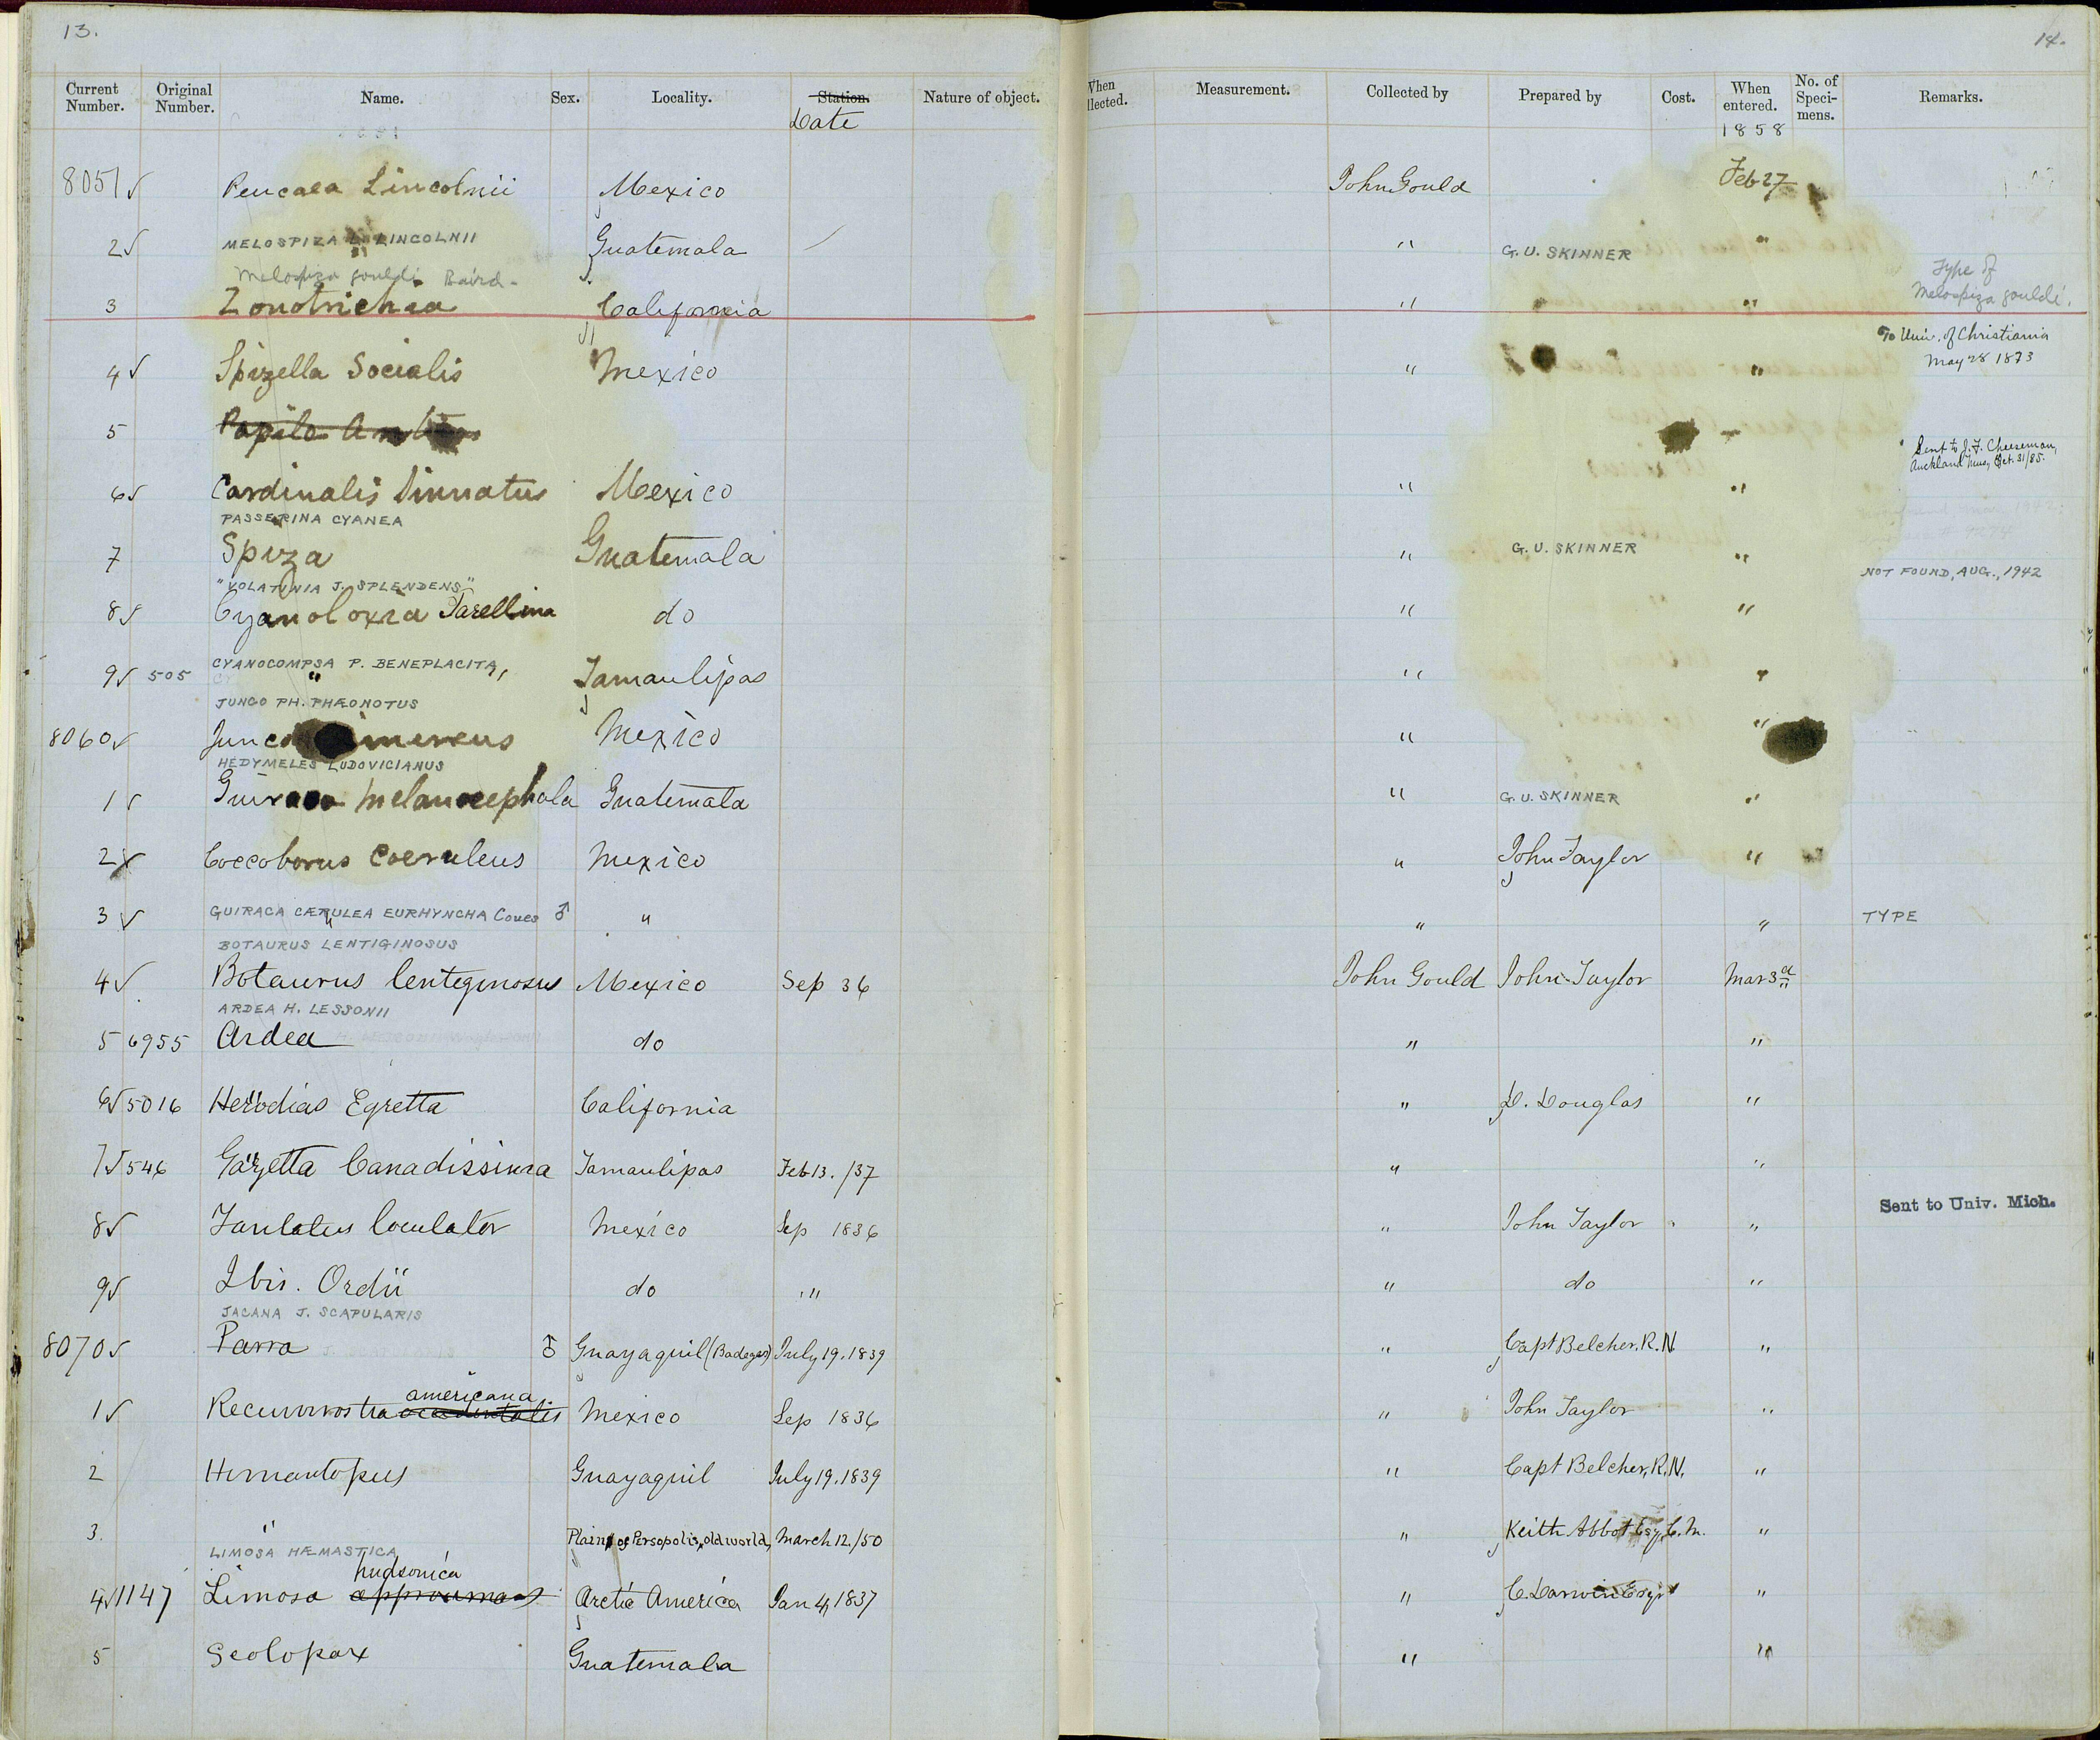 13.
14.
Current Number. Original Number. Name. Sex. Locality. Station. Date Nature of object. When llected. Measurement. Collected by Prepared by Cost. When entered. No. of Speci-mens. Remarks.
1858
8051 ✓ Peucaea Lincolnii Mexico John Gould Feb 27
MELOSPIZA L. LINCOLNII
2 ✓ " Guatemala " G. U. SKINNER "
Melospiza gouldi Baird.
Type of Melospiza gouldi.
3 Zonotrichia California " "
To Univ. of Christiania
May 28 1873
4 ✓ Spizella Socialis Mexico " "
5 Papilo
Sent to J. F. Cheeseman,
Auckland Mus, Oct. 31/85.
6 ✓ Cardinalis Sinuatus Mexico " "
PASSERINA CYANEA
7 Spiza Guatemala " G. U. SKINNER "
NOT FOUND, AUG., 1942
"VOLATINIA J. SPLENDENS"
8 ✓ Cyanoloxia Parellina do " "
CYANOCOMPSA P. BENEPLACITA
9 ✓ 505 " " Tamaulipas " "
JUNCO PH. PHÆONOTUS
8060 ✓ Junco Cinereus Mexico " "
HEDYMELES LUDOVICIANUS
1 ✓ Guiraca Melanocephala Guatemala " G. U. SKINNER "
2 Coccoborus Caeruleus Mexico " John Taylor "
GUIRACA CÆRULEA EURHYNCHA Coues
3 ✓ " ♂ " " " TYPE
BOTAURUS LENTIGINOSUS
4 ✓ Botaurus lentiginosus Mexico Sep 36 John Gould John Taylor Mar 3d
ARDEA H. LESSONII
5 6955 Ardea do " "
6 ✓ 5016 Herodias Egretta California " D. Douglas "
7 ✓ 546 Garzetta Canadissima Tamaulipas Feb 13. /37 " "
8 ✓ Tantalus loculator Mexico Sep 1836 " John Taylor " Sent to Univ. Mich.
9 ✓ Ibis. Ordii do " " do "
JACANA J. SCAPULARIS
8070 ✓ Parra ♂ Guayaquil (Bodegas) July 19. 1839 " Capt Belcher. R. N. "
americana
1 ✓ Recurvirostra occidentalis Mexico Sep 1836 " John Taylor "
2 Himantopus Guayaquil July 19. 1839 " Capt Belcher, R. N. "
3. " Plains of Persopolis, old world, March 12. /50 " Keith Abbot Esq. C. M. "
LIMOSA HÆMASTICA
hudsonica
4 ✓ 1147 Limosa Arctic America Jan 4, 1837 " C. Darwin Esqr "
5 Scolopax Guatemala " "